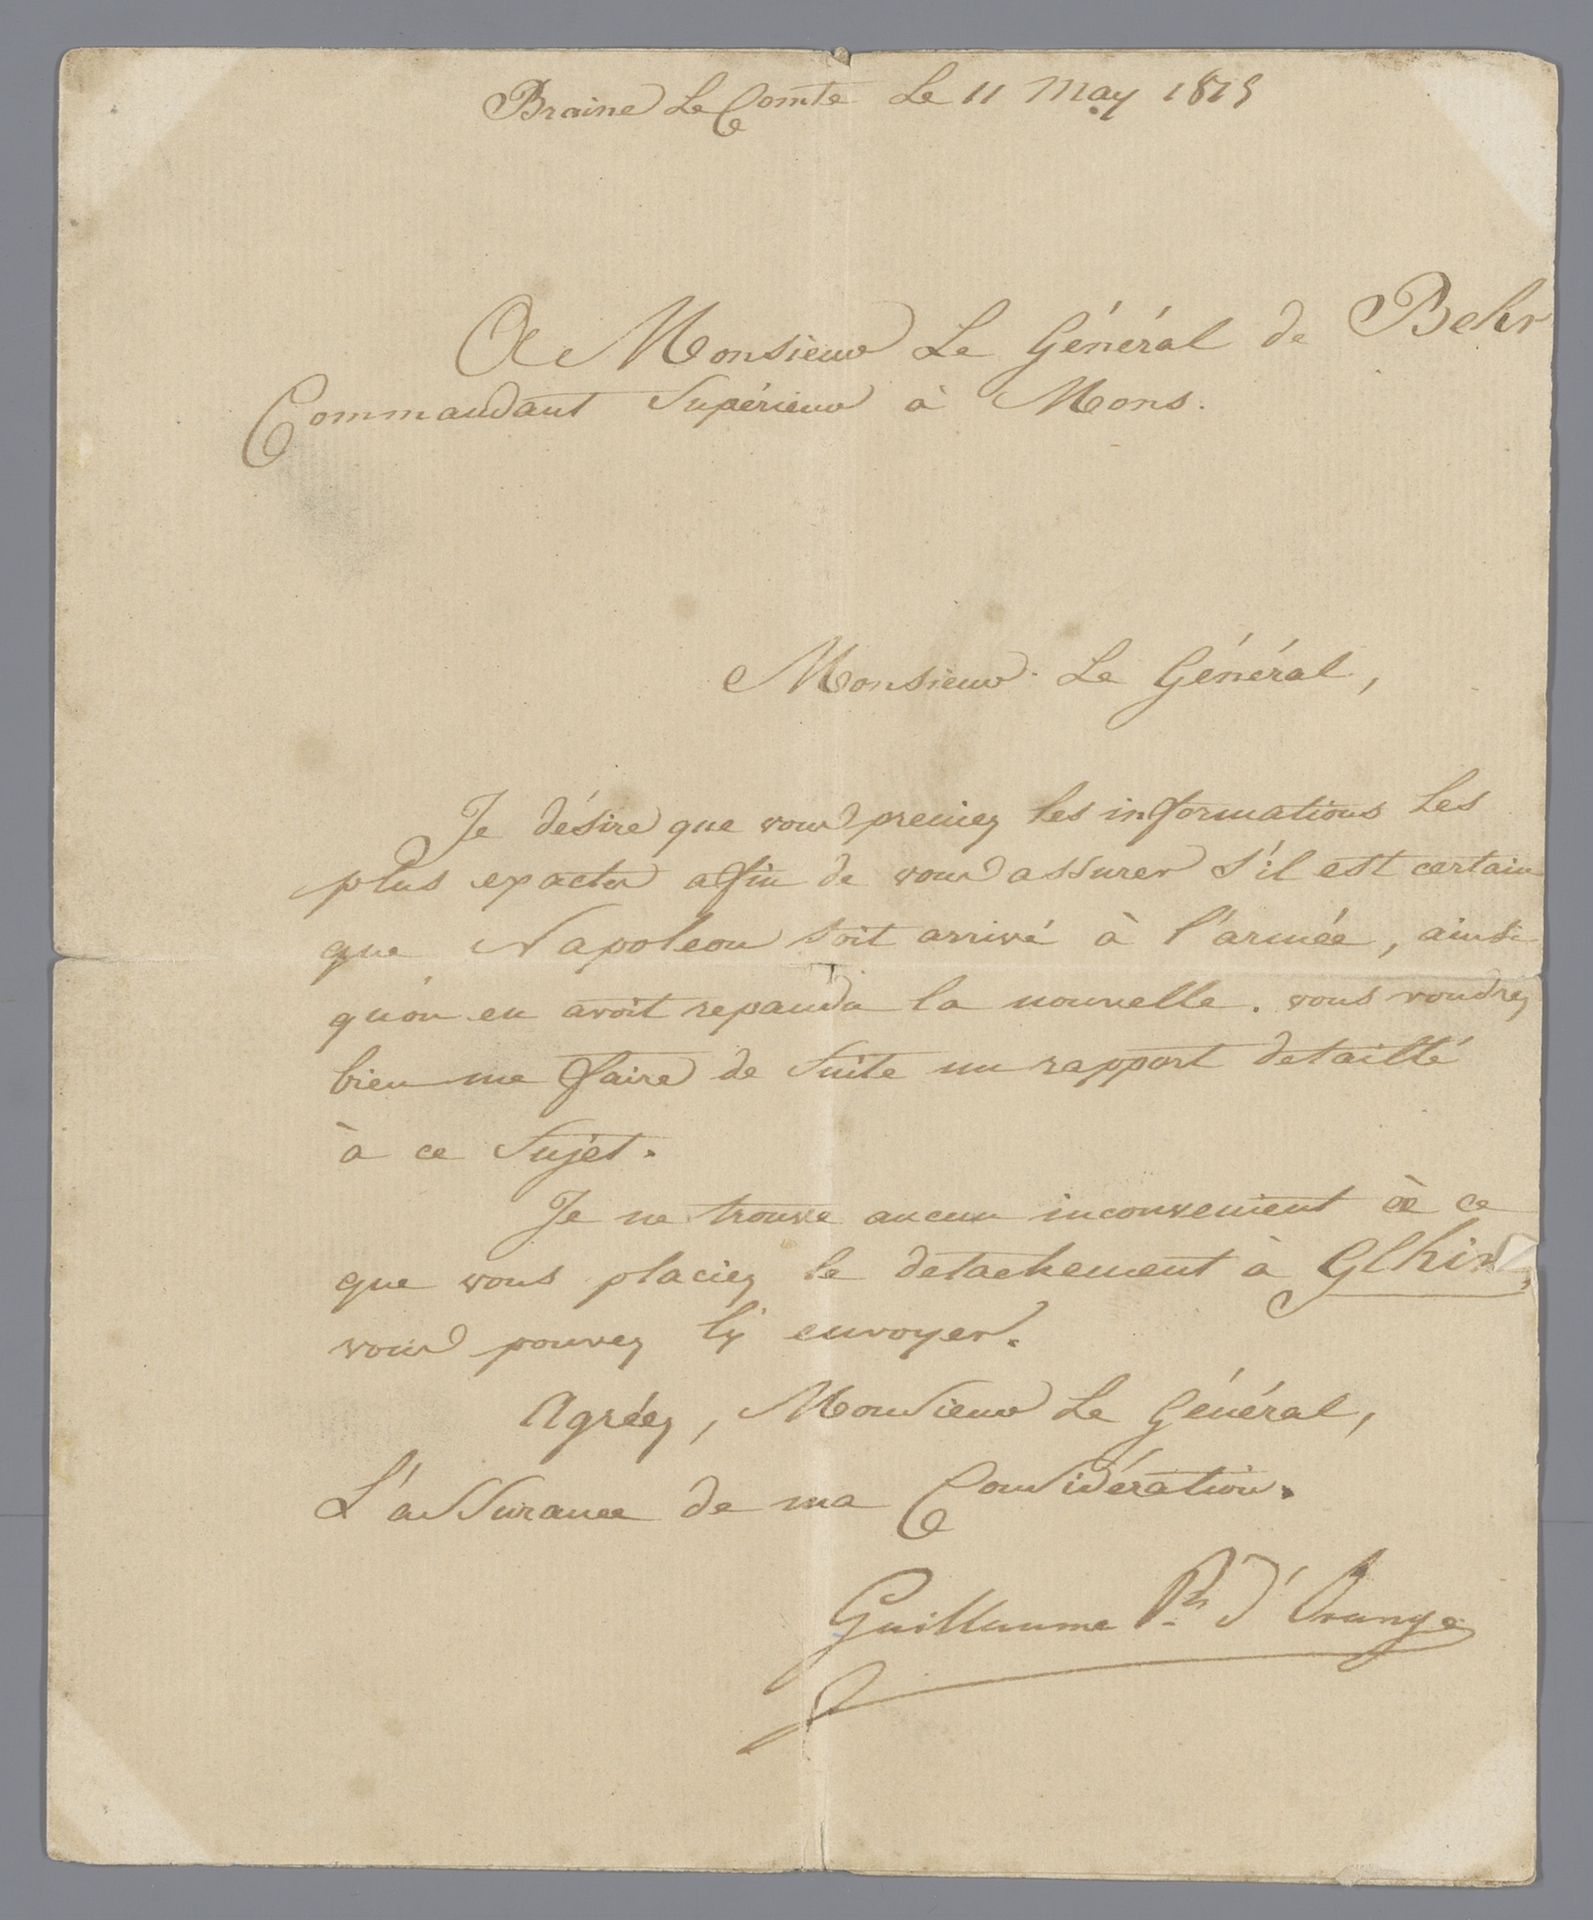 Braine Le Comte Le 11 May 1815
A Monsieur Le Général de Behr
Commandant Supérieur à Mons.
Monsieur Le Général,
Je désire que vous preniez les informations Les
plus exactes afin de vous assurer s'il est certain
que Napoleon soit arrivé à l'armée, ainsi
qu'on en avoit repandu la nouvelle. vous voudrez
bien me faire de suite un rapport detaillé
à ce sujet.
Je ne trouve aucun inconvenient à ce
que vous placiez le detachement à Ghlin,
vous pouvez l'y envoyer.
Agréez, Monsieur Le Général,
L'assurance de ma Considération.
Guillaume Pce d'Orange